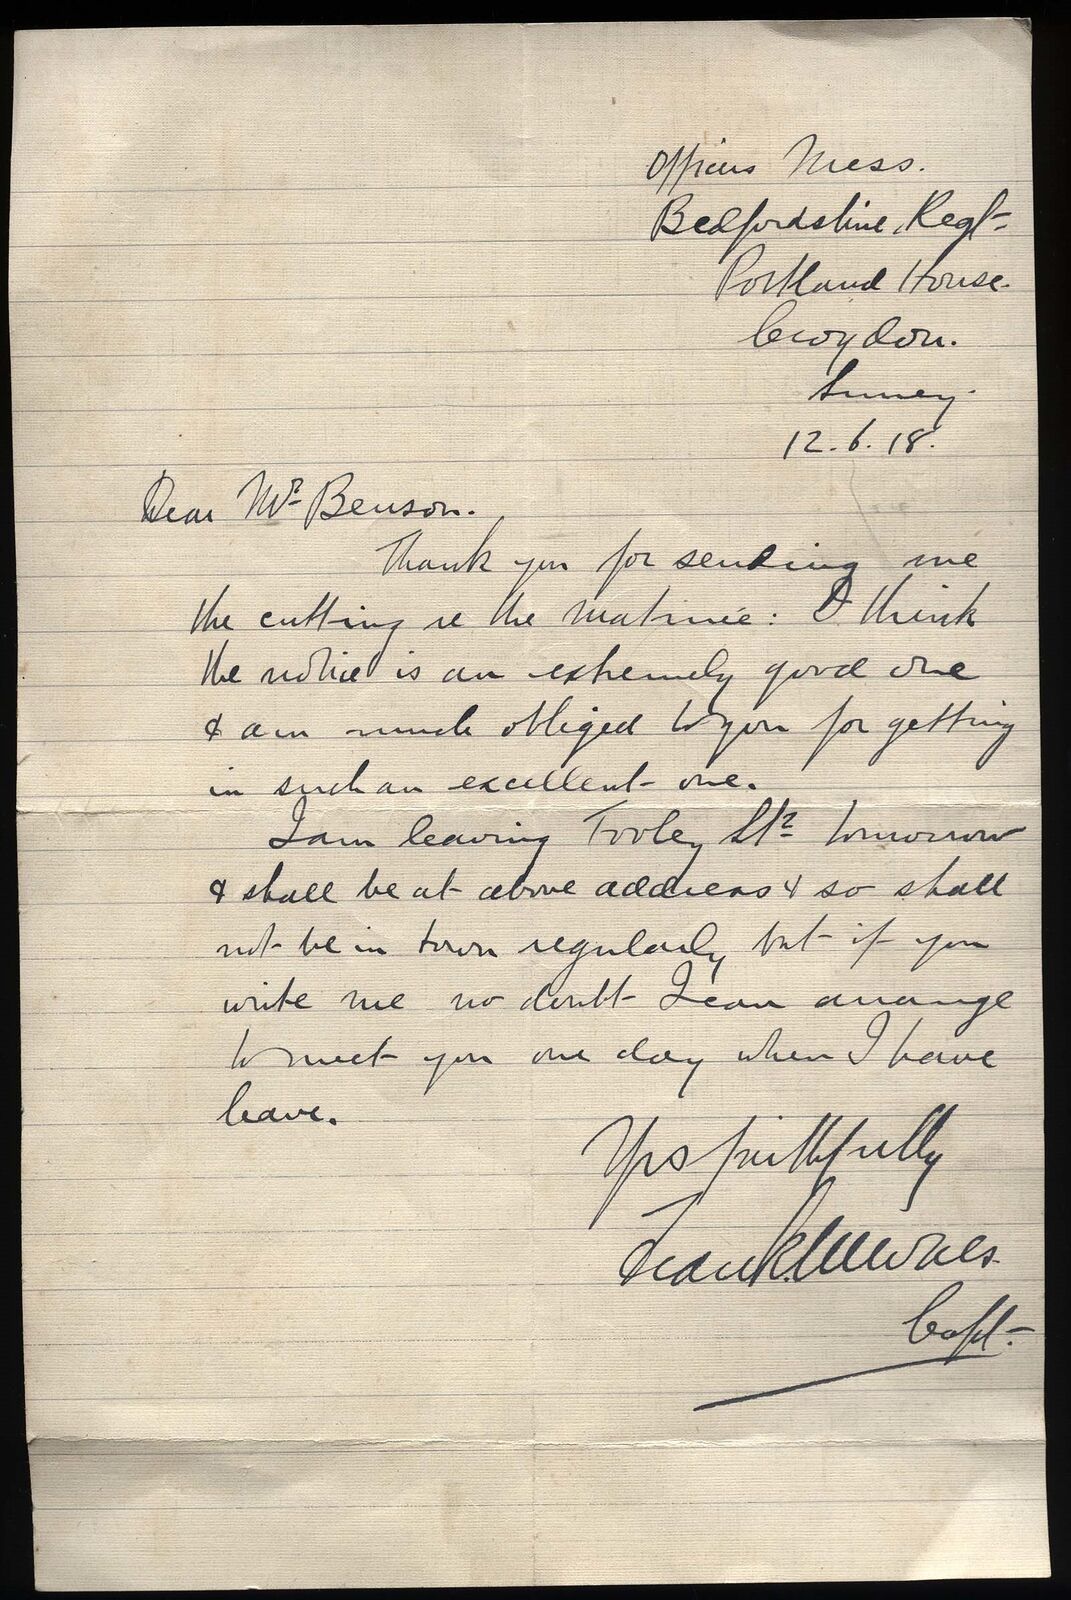 Officers Mess.
Bedfordshire Regt.
Portland House.
Croydon.
Surrey.
12.6.18.
Dear Mr Benson.
Thank you for sending me
the cutting re the matinée: I think
the notice is an extremely good one
& am much obliged to you for getting
in such an excellent one.
I am leaving Tooley St tomorrow
& shall be at above address & so shall
not be in town regularly but if you
write me no doubt I can arrange
to meet you one day when I have
leave.
Yrs faithfully
Frank
Capt.